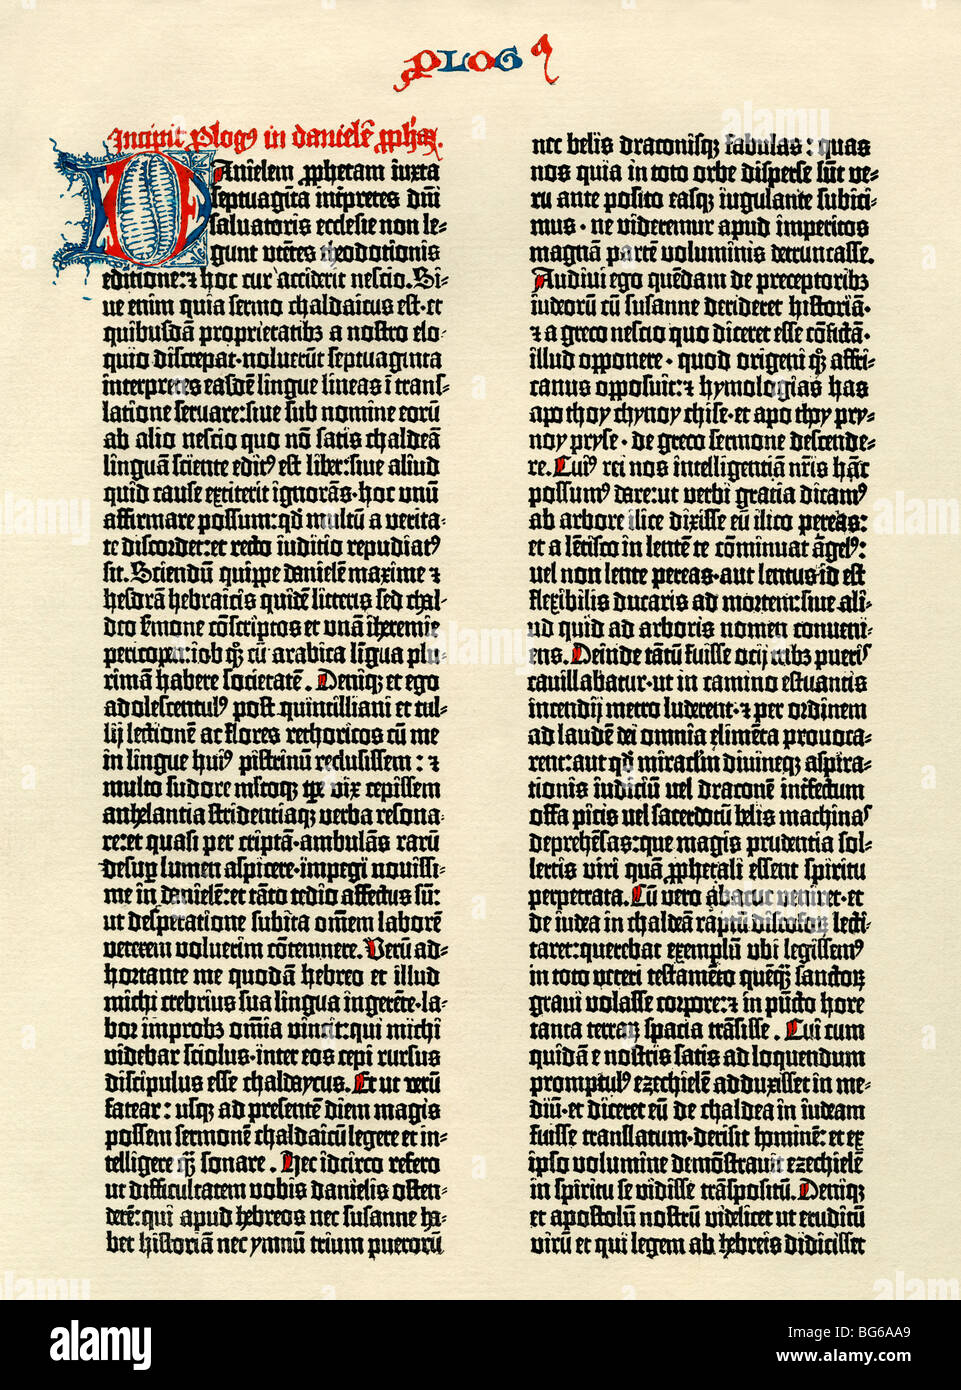 PLOG9
Incipit plog9 in danielē ꝓphā.
Danielem ꝓphetam iuxta
septuagīta īterpretes dn̄i
saluatoris ecclesie non le-
gunt vtētes theodotionis
editione: ⁊ hoc cur acciderit nescio. Si-
ue enim quia sermo chaldaicus est · et
quibusdā proprietatibꝫ a nostro elo-
quio discrepat · noluerūt septuaginta
interpretes easdē lingue lineas ī trans-
latione seruare: siue sub nomine eorū
ab alio nescio quo nō satis chaldeā
linguā sciente edit9 est liber: siue aliud
quid cause extiterit ignorās · hoc unū
affirmare possum: qd̄ multū a verita-
te discordet: et recto iuditio repudiat9
sit. Sciendū quippe danielē maxime ⁊
hesdrā hebraicis quidē litteris sed chal-
deo s̄mone cōscriptos et unā iheremie
pericopen: iob qꝫ cū arabica līgua plu-
rimā habere societatē. Deniqꝫ et ego
adolescentul9 post quintilliani et tul-
lij lectionē ac flores rethoricos cū me
in lingue hui9 pistrinū reclusissem: ⁊
multo sudore mltoqꝫ tꝑe vix cepissem
anhelantia stridentiaqꝫ verba resona-
re: et quasi per criptā · ambulās rarū
desuꝑ lumen aspicere · impegi nouissi-
me in danielē: et tāto tedio affectus sū:
ut desperatione subita om̄em laborē
veterem voluerim cōtemnere. Verū ad-
hortante me quodā hebreo et illud
michi crebrius sua lingua ingerēte · la-
bor improbꝫ om̄ia vincit: qui michi
videbar sciolus · inter eos cepi rursus
discipulus esse chaldaycus. Et ut verū
fatear: usqꝫ ad presentē diem magis
possem sermonē chaldaicū legere et in-
telligere qꝫ sonare. Nec idcirco refero
ut difficultatem vobis danielis osten-
derē: qui apud hebreos nec susanne ha-
bet historiā nec ymnū trium puerorū
nec belis draconisqꝫ fabulas: quas
nos quia in toto orbe disperse sūt ve-
ru ante posito easqꝫ iugulante subici-
mus · ne videremur apud imperitos
magnā partē voluminis detruncasse.
Audiui ego quēdam de preceptoribꝫ
iudeorū cū susanne derideret historiā ·
⁊ a greco nescio quo diceret esse cōfictā ·
illud opponere · quod origeni qꝫ affri-
canus opposuit: ⁊ hymologias has
apo thoy chynoy chise · et apo thoy pry-
noy pryse · de greco sermone descende-
re. Cui9 rei nos intelligentiā nr̄is hāc
possum9 dare: ut verbi gratia dicam9
ab arbore ilice dixisse eū ilico pereas:
et a lētisco in lentē te cōminuat āgel9:
uel non lente pereas · aut lentus id est
flexibilis ducaris ad mortem: siue ali-
ud quid ad arboris nomen conueni-
ens. Deinde tātū fuisse ocij tribꝫ pueris
cauillabatur · ut in camino estuantis
incendij metro luderent · ⁊ per ordinem
ad laudē dei omnia elimēta prouoca-
rent: aut qd̄ miraclm̄ diuineqꝫ aspira-
tionis iudiciū uel draconē infectum
offa picis uel sacerdotū belis machinas
deprehēsas: que magis prudentia sol-
lertis viri quā ꝓphetali essent spiritu
perpetrata. Cū vero abacuc veniret · et
de iudea in chaldeā raptū discoforū lecti-
taret: querebat exemplū vbi legissem9
in toto veteri testamēto quēqꝫ sanctoꝝ
graui volasse corpore: ⁊ in pūcto hore
tanta terraꝝ spacia trāsisse. Cui cum
quidā e nostris satis ad loquendum
promptul9 ezechielē adduxisset in me-
diū · et diceret eū de chaldea in iudeam
fuisse translatum · derisit hominē: et ex
ipso volumine demōstrauit ezechielē
in spiritu se vidisse trāspositū. Deniqꝫ
et apostolū nostrū videlicet ut eruditū
virū et qui legem ab hebreis didicisset
alamy
Image ID: BG6AA9
www.alamy.com